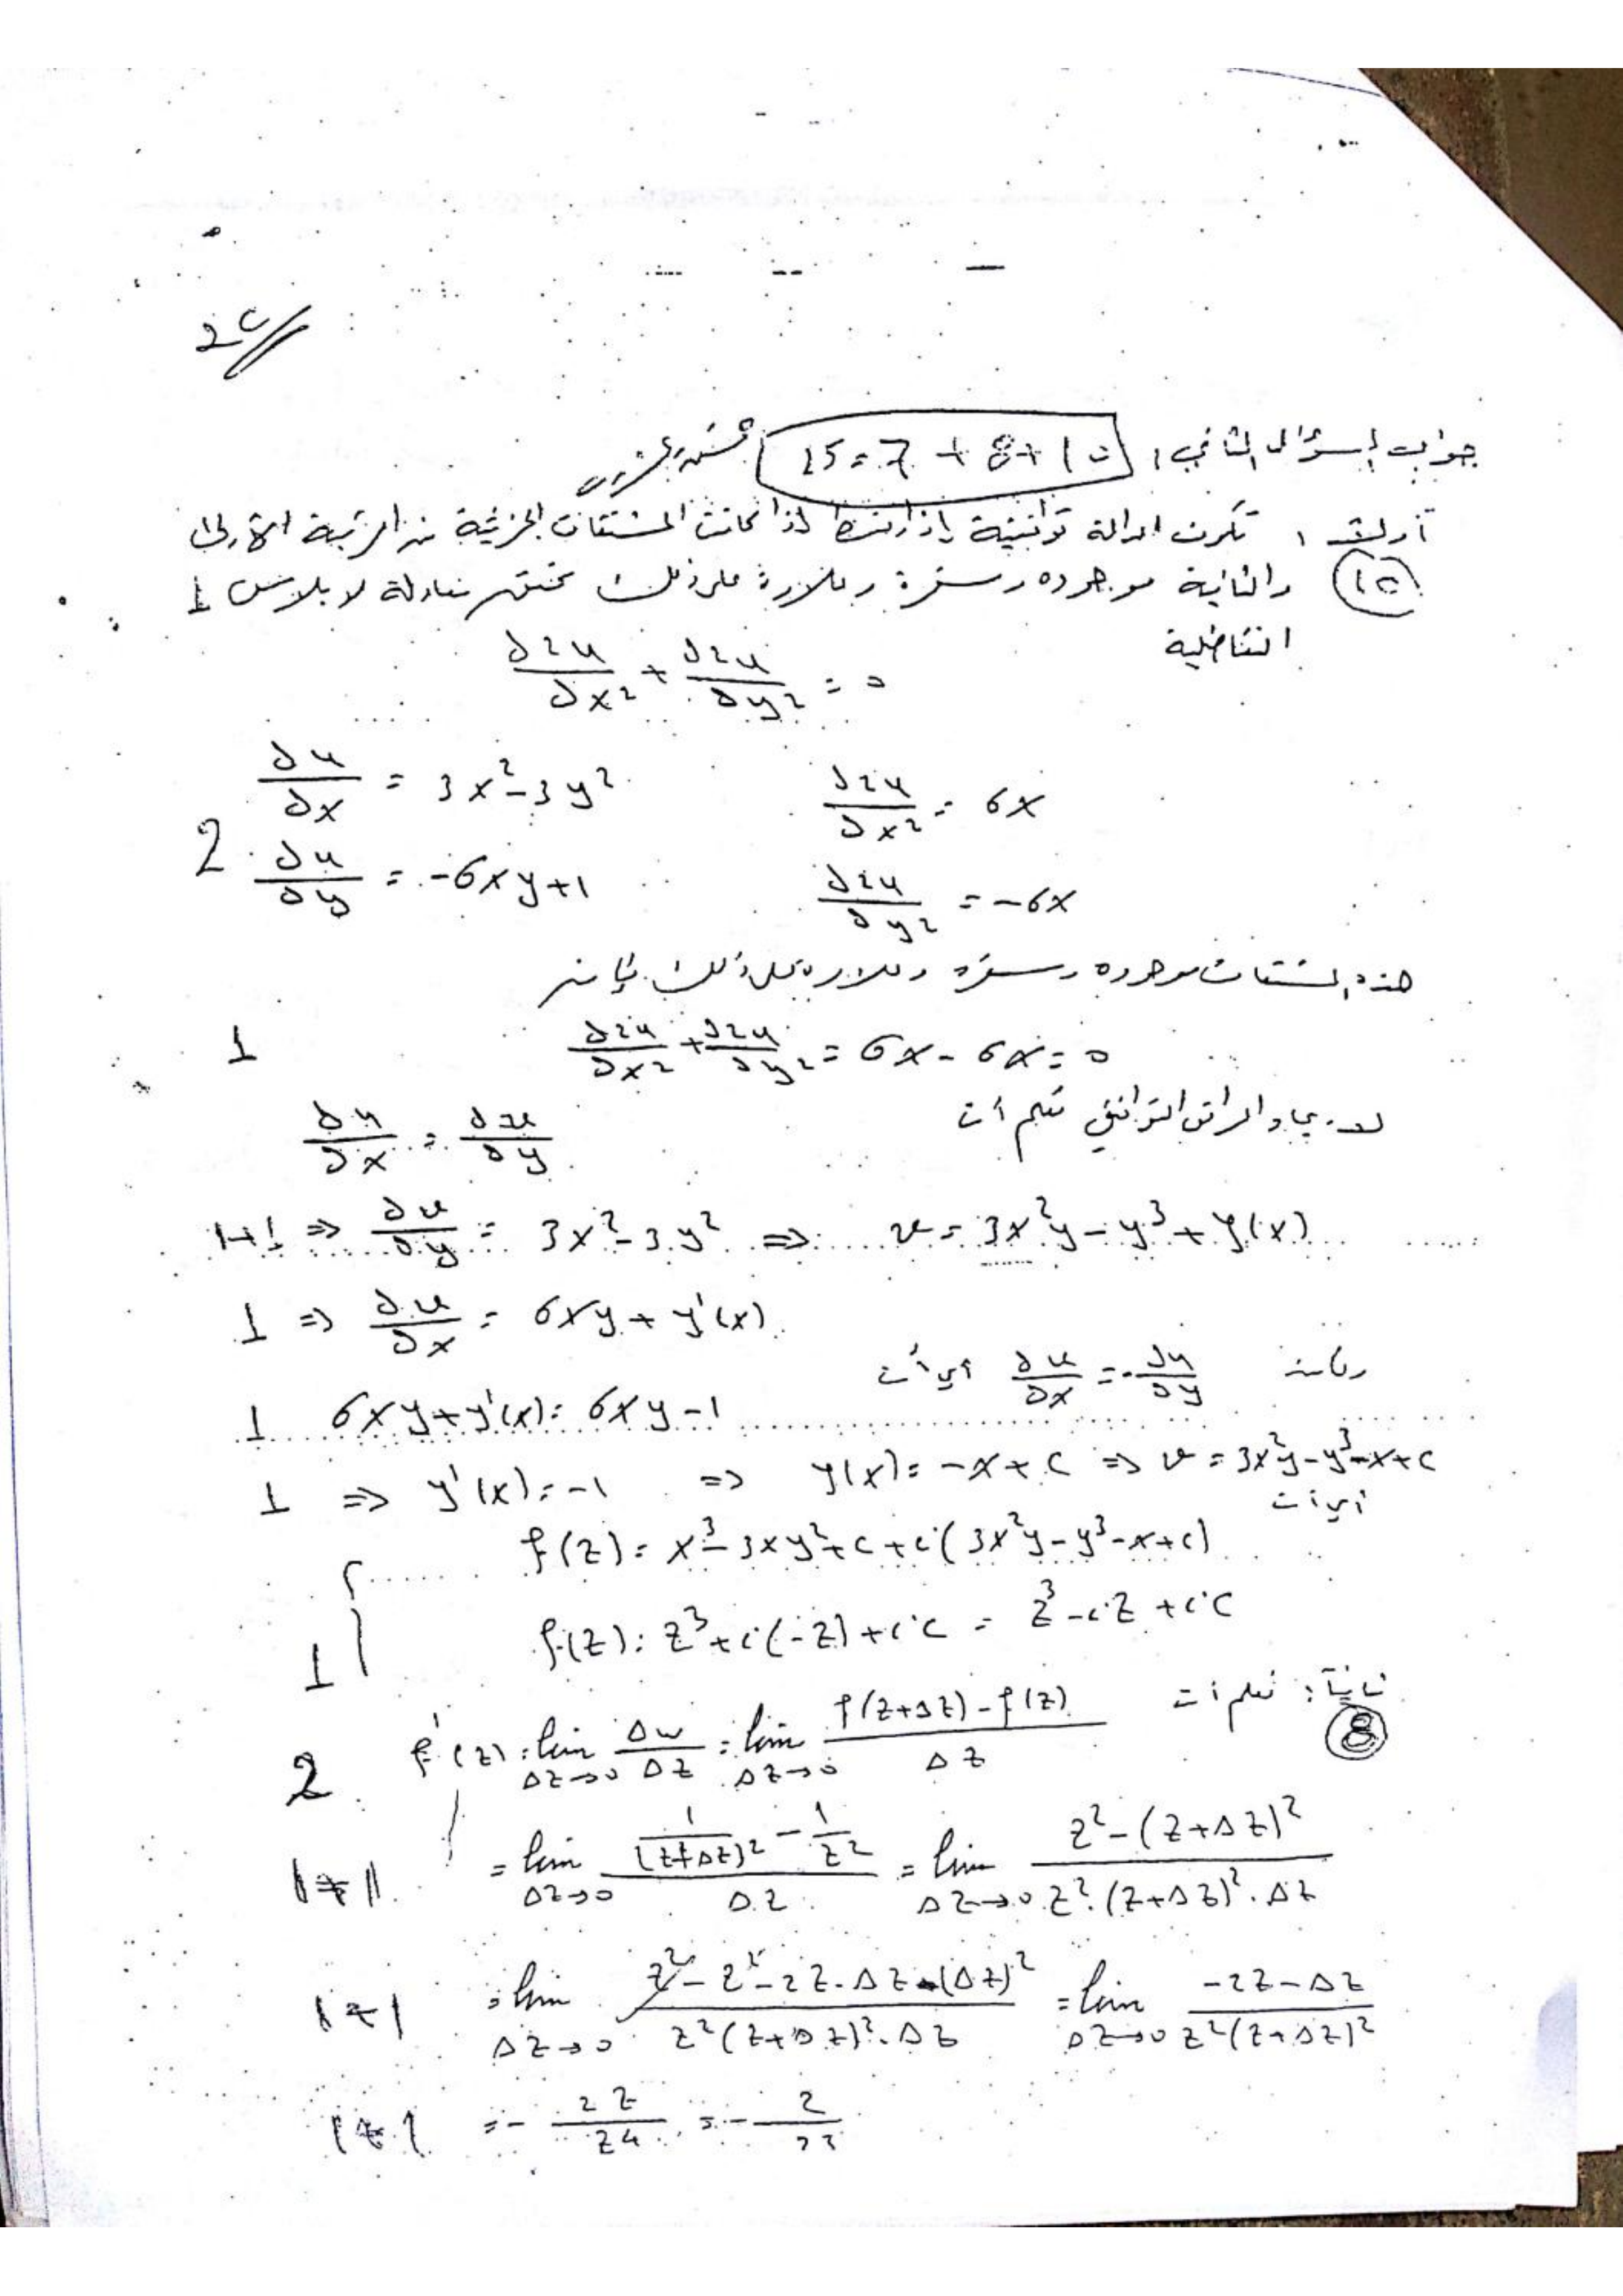 جواب السؤال الثاني : 10 + 8 + 7 = 25
أولاً : تكون الدالة توافقية إذا وفقط إذا كانت المشتقات الجزئية من المرتبة الأولى
10 والثانية موجودة ومستمرة وعلاوة على ذلك تحقق معادلة لابلاس 1
التفاضلية
∂²u/∂x² + ∂²u/∂y² = 0
∂u/∂x = 3x² - 3y² ∂²u/∂x² = 6x
2 ∂u/∂y = -6xy + 1 ∂²u/∂y² = -6x
هذه المشتقات موجودة ومستمرة وعلاوة على ذلك فإن
1 ∂²u/∂x² + ∂²u/∂y² = 6x - 6x = 0
المرافق التوافقي نعلم أن
∂u/∂x = ∂v/∂y
1+1 ⇒ ∂v/∂y = 3x² - 3y² ⇒ v = 3x²y - y³ + φ(x)
1 ⇒ ∂v/∂x = 6xy + φ'(x)
∂v/∂x = -∂u/∂y أي أن
1 6xy + φ'(x) = 6xy - 1
1 ⇒ φ'(x) = -1 ⇒ φ(x) = -x + c ⇒ v = 3x²y - y³ - x + c
أي أن
f(z) = x³ - 3xy² + c + i(3x²y - y³ - x + c)
1 f(z) = z³ + i(-z) + ic = z³ - iz + ic
ثانياً : نعلم أن
8
2 f'(z) = lim Δz→0 Δw/Δz = lim Δz→0 (f(z+Δz) - f(z))/Δz
1+1 = lim Δz→0 (1/(z+Δz)² - 1/z²)/Δz = lim Δz→0 (z² - (z+Δz)²)/(z².(z+Δz)².Δz)
1+1 = lim Δz→0 (z² - z² - 2z.Δz - (Δz)²)/(z²(z+Δz)².Δz) = lim Δz→0 (-2z - Δz)/(z²(z+Δz)²)
1+1 = - 2z/z4 = - 2/z3